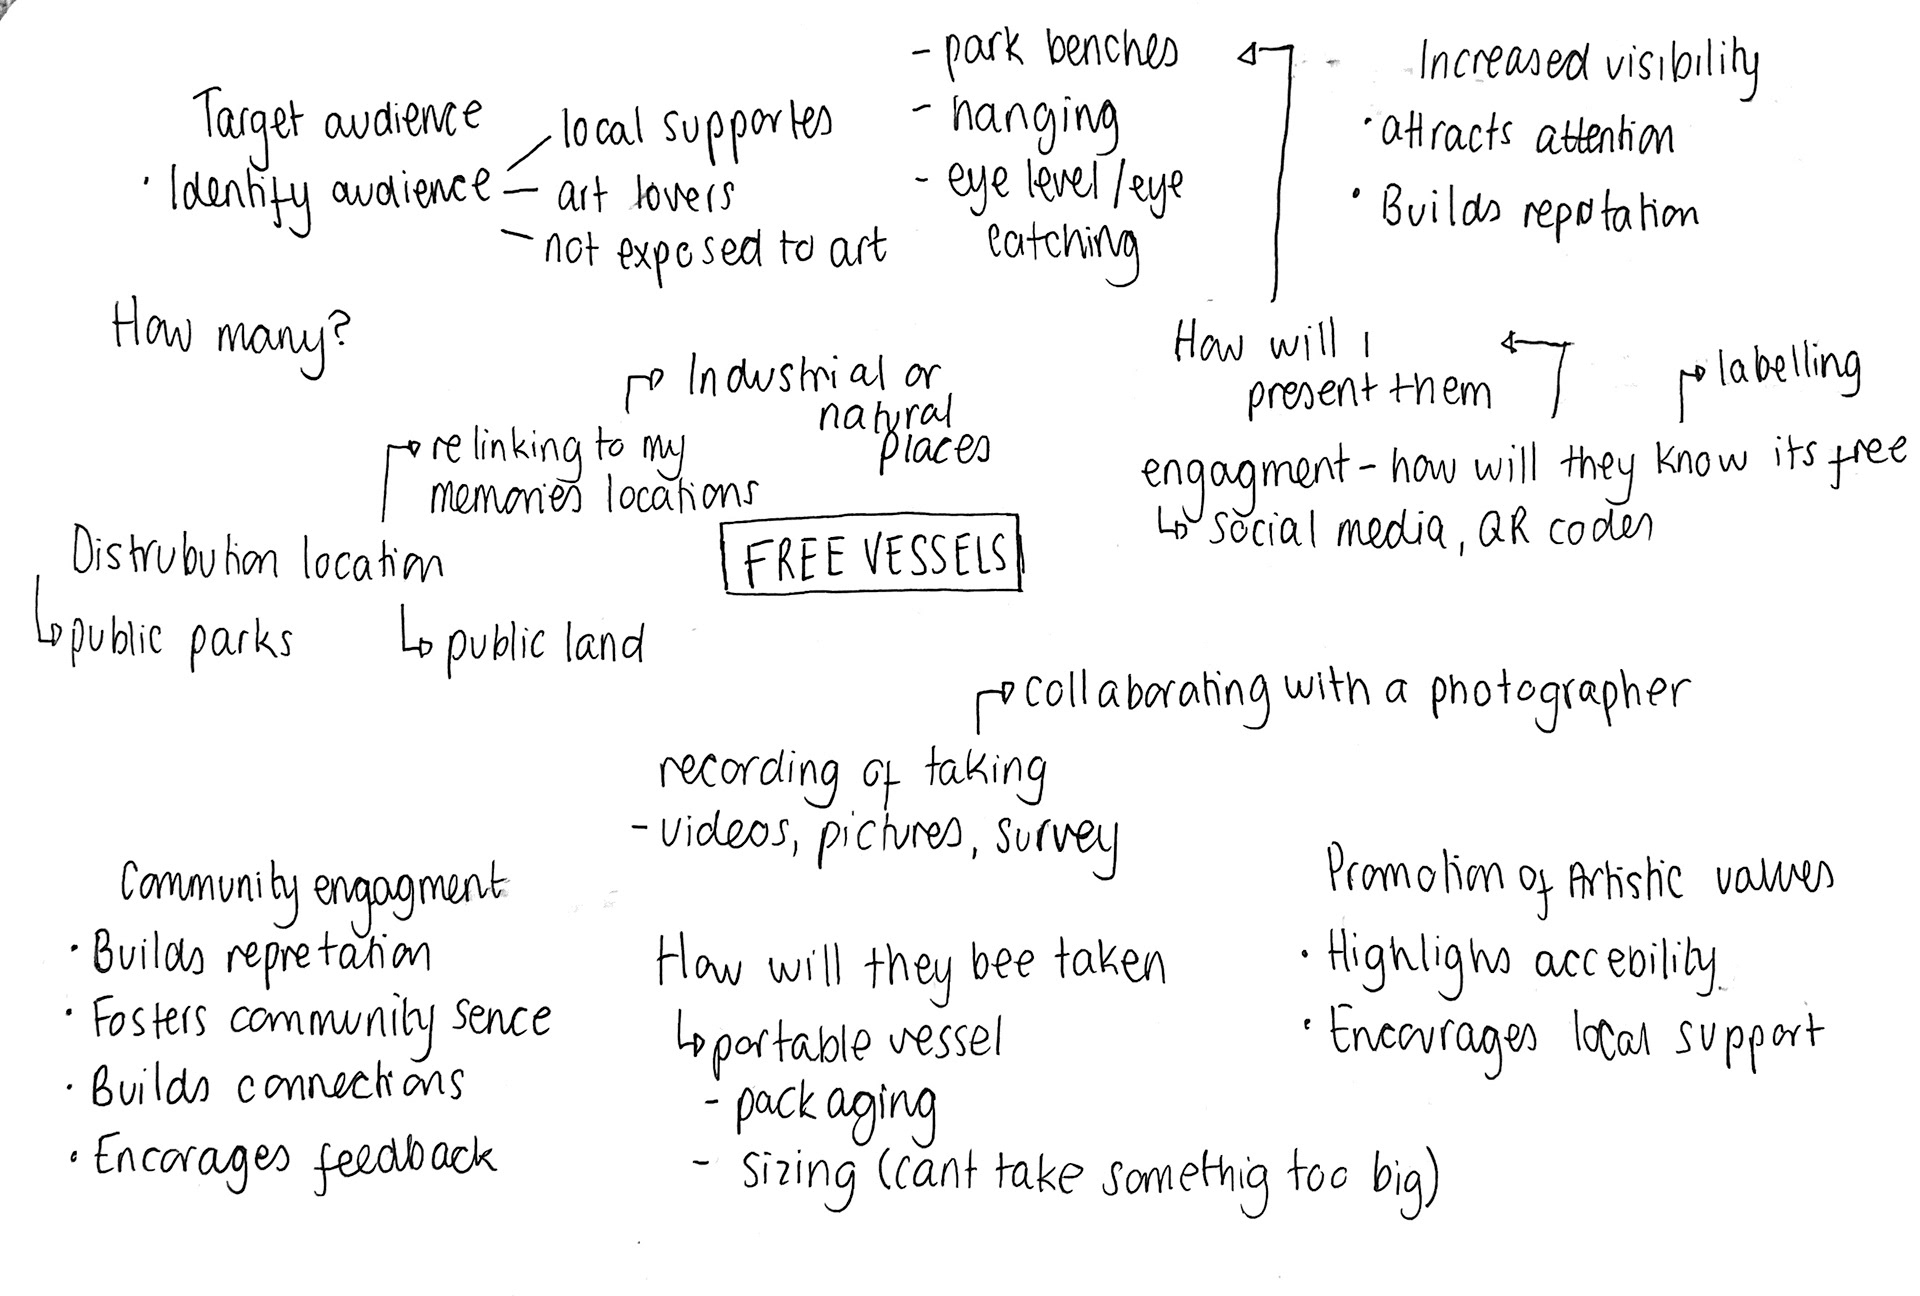 Target audience
· Identify audience
local supportes
art lovers
- not exposed to art
- park benches
- hanging
- eye level/eye
catching
Increased visibility
· attracts attention
· Builds reputation
How many?
Industrial or
natural
places
relinking to my
memories locations
Distrubution location
public parks
public land
FREE VESSELS
How will I
present them
labelling
engagment - how will they know its free
social media, QR codes
collaborating with a photographer
recording of taking
- videos, pictures, survey
Community engagment
· Builds repretation
· Fosters community sence
· Builds connections
· Encorages feedback
How will they bee taken
portable vessel
- packaging
- sizing (cant take somethig too big)
Promotion of Artistic values
· Highlighs accebility
· Encourages local support